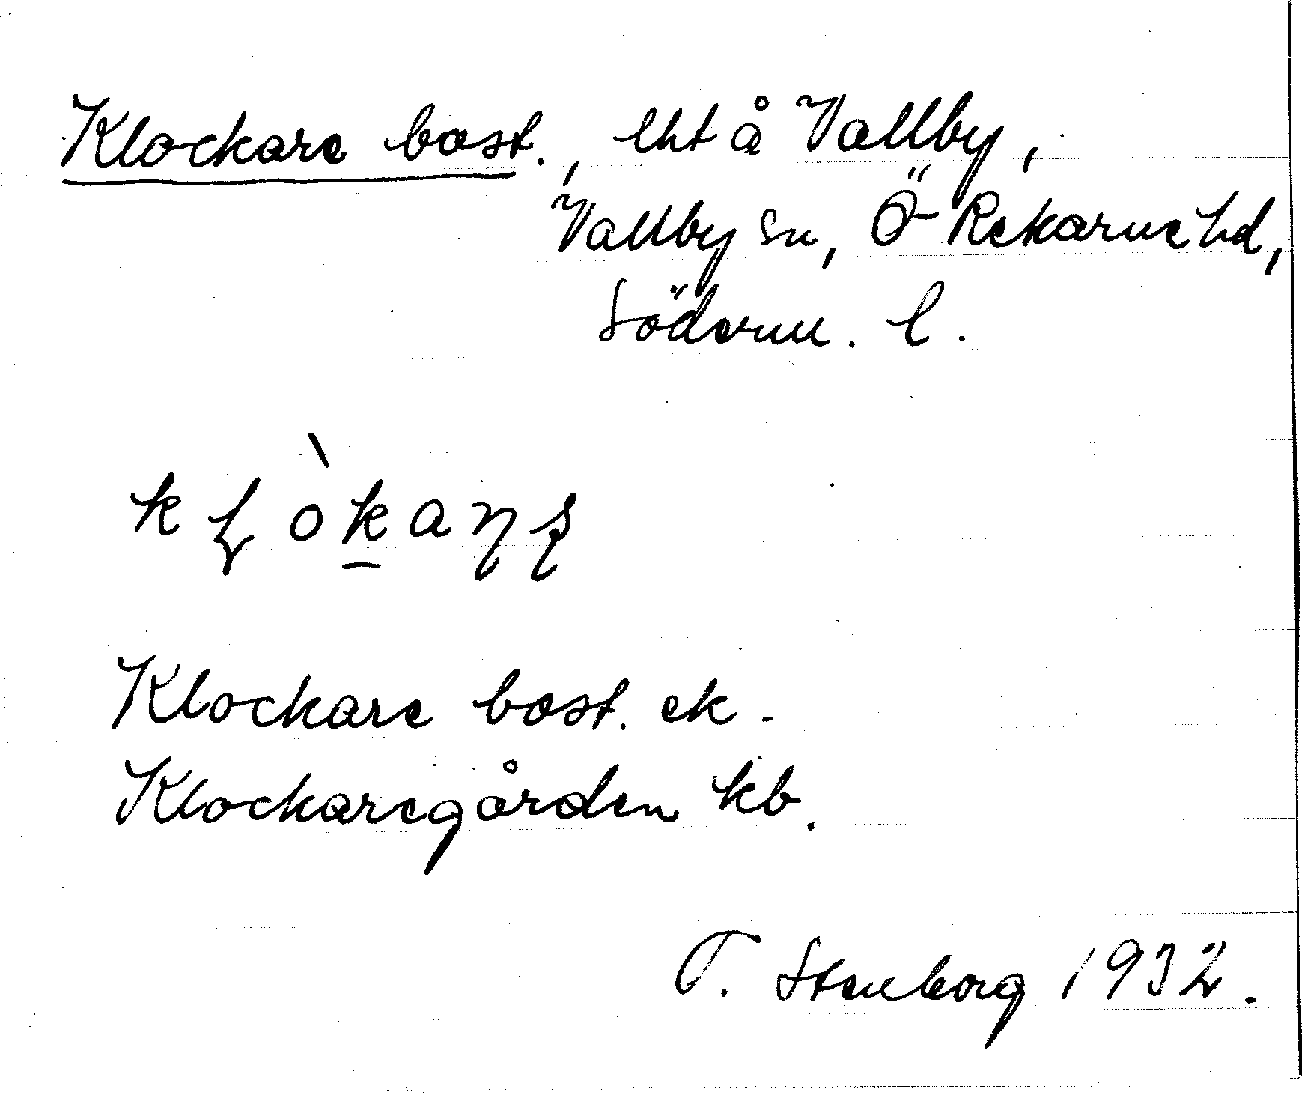 Klockare bost., lht å Vallby,
Vallby sn, Ö Rekarne hd,
Söderm. l.
kɭòkaɳʂ
Klockare bost. ek.
Klockaregården kb.
T. Stenborg 1932.